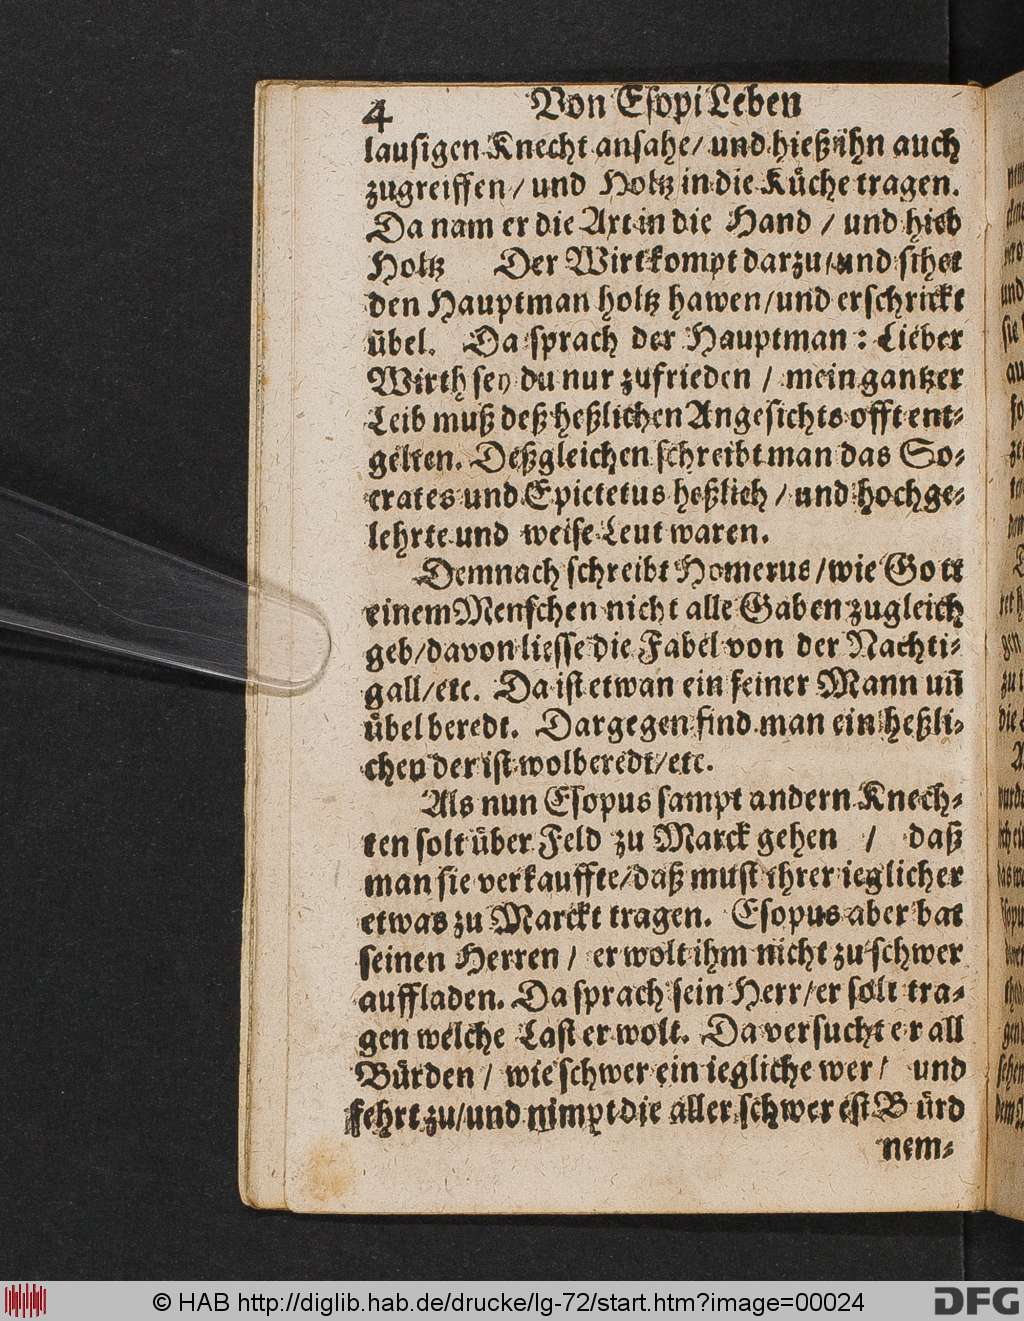 4 Von Esopi Leben
lausigen Knecht ansahe/ und hieß ihn auch
zugreiffen/ und Holtz in die Küche tragen.
Da nam er die Axt in die Hand / und hieb
Holtz Der Wirt kompt darzu/und sihet
den Hauptman holtz hawen/und erschrickt
übel. Da sprach der Hauptman : Lieber
Wirth sey du nur zufrieden / mein gantzer
Leib muß deß heßlichen Angesichts offt ent-
gelten. Deßgleichen schreibt man das So-
crates und Epictetus heßlich / und hochge-
lehrte und weise Leut waren.
Demnach schreibt Homerus/wie Gott
einem Menschen nicht alle Gaben zugleich
geb/davon liesse die Fabel von der Nachti-
gall/etc. Da ist etwan ein feiner Mann uñ
übel beredt. Dargegen find man ein heßli-
chen der ist wolberedt/etc.
Als nun Esopus sampt andern Knech-
ten solt über Feld zu Marck gehen / daß
man sie verkauffte/daß must ihrer ieglicher
etwas zu Marckt tragen. Esopus aber bat
seinen Herren/ er wolt ihm nicht zu schwer
auffladen. Da sprach sein Herr/er solt tra-
gen welche Last er wolt. Da versucht er all
Bürden/ wie schwer ein iegliche wer/ und
fehrt zu/und nimpt die aller schwer est B ürd
nem-
© HAB http://diglib.hab.de/drucke/lg-72/start.htm?image=00024
DFG